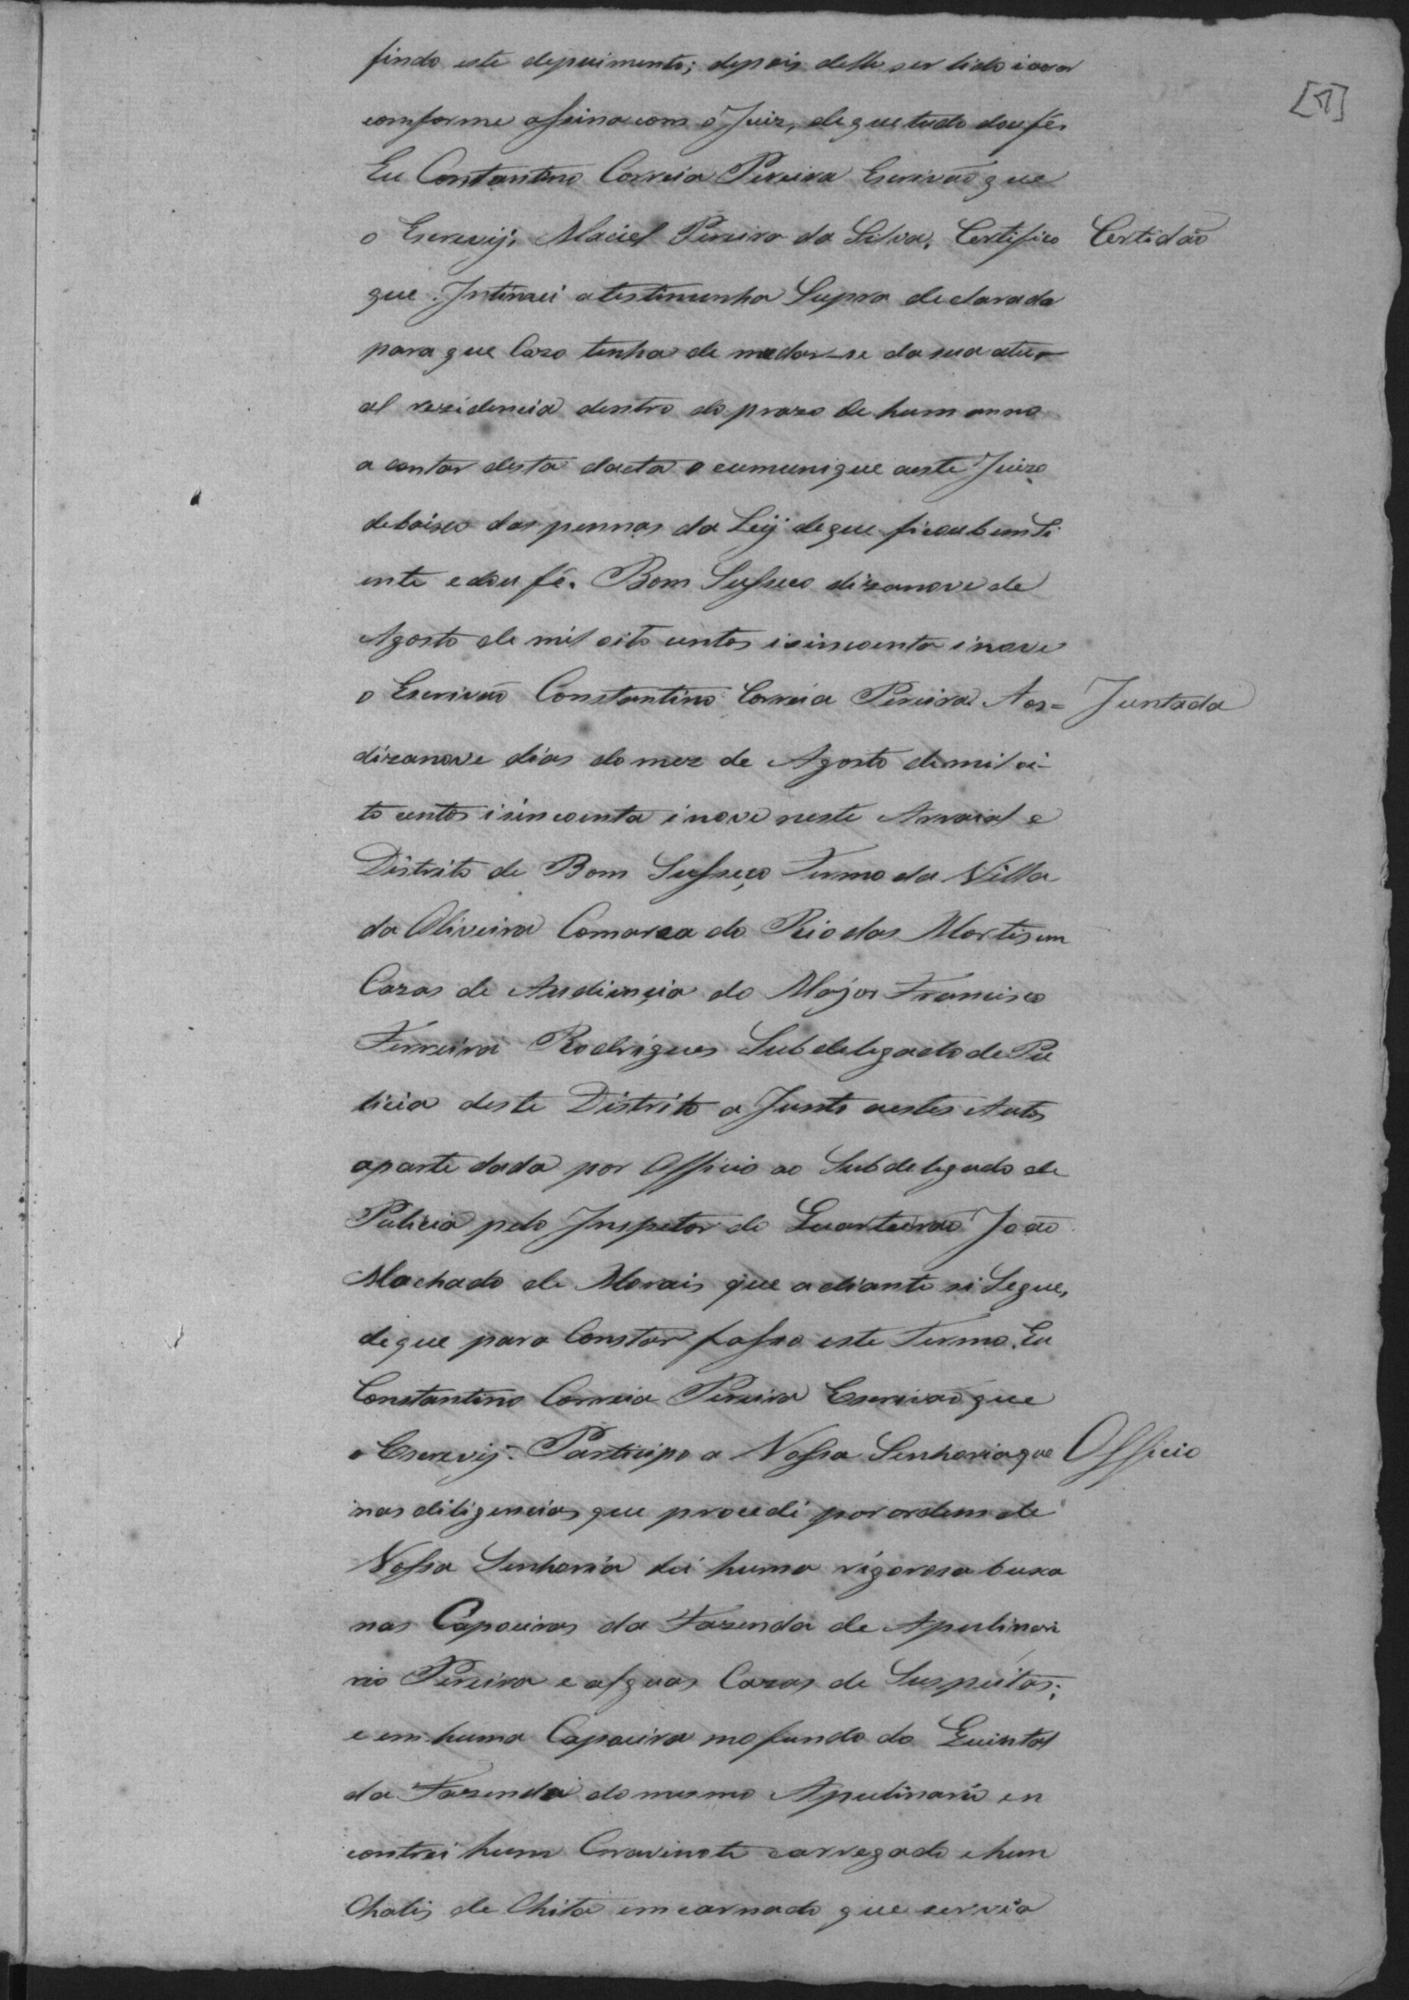 findo este depuimento; depois delle ser lido i axar
comforme assina com o Juiz, de que tudo dou fé.
Eu Constantino Correia Pereira Escrivão que
o Escrevij. Maciel Pereira da Silva. Certifico
Certidão
que Intimei a testimunha Supra declarada
para que Cazo tenha de mudar-se da sua atu-
al rezidencia dentro do prazo de hum anno
a contar desta dacta o cumunique aeste Juizo
debaixo das pennas da Leij de que ficou bem Si
ente e dou fé. Bom Susseço dizanove de
Agosto de mil oito centos i sincoenta i nove
o Escrivão Constantino Correia Pereira. Aos=
Juntada
dizanove dias do mez de Agosto de mil oi-
to centos i sincoenta i nove neste Arraial e
Distrito de Bom Susseço Termo da Villa
da Oliveira Comarca do Rio das Mortes em
Cazas de Audiençia do Major Francisco
Ferreira Rodrigues Subdelegado de Pu
licia deste Distrito a Junto aestes Autos
aparte dada por Officio ao Subdelegado de
Pulicia pelo Inspetor de Quarteirão João
Machado de Morais que a diante si Segue,
de que para Constar fasso este Termo. Eu
Constantino Correia Pereira Escrivão que
o Escrevij. Participo a Vossa Senhoria que
Officio
nas diligencias que procedi por ordem de
Vossa Senhoria dei huma rigoroza busca
nas Capoeiras da Fazenda de Apulinari
rio Pereira e alguas Cazas de Suspeitas;
e em huma Capoeira no fundo do Quintal
da Fazenda do mesmo Apulinario en
contrei hum Cravinote carregado e hum
Chalis de Chita emcarnado que servia